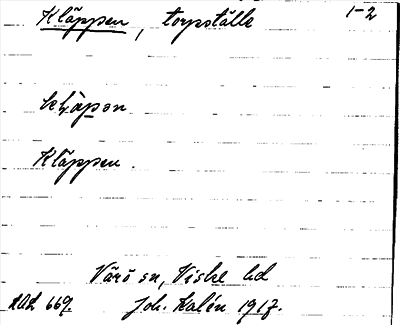 Kläppen, torpställe 1-2
Kläppen.
Värö sn, Viske hd
669. Joh. Kalén 1917.